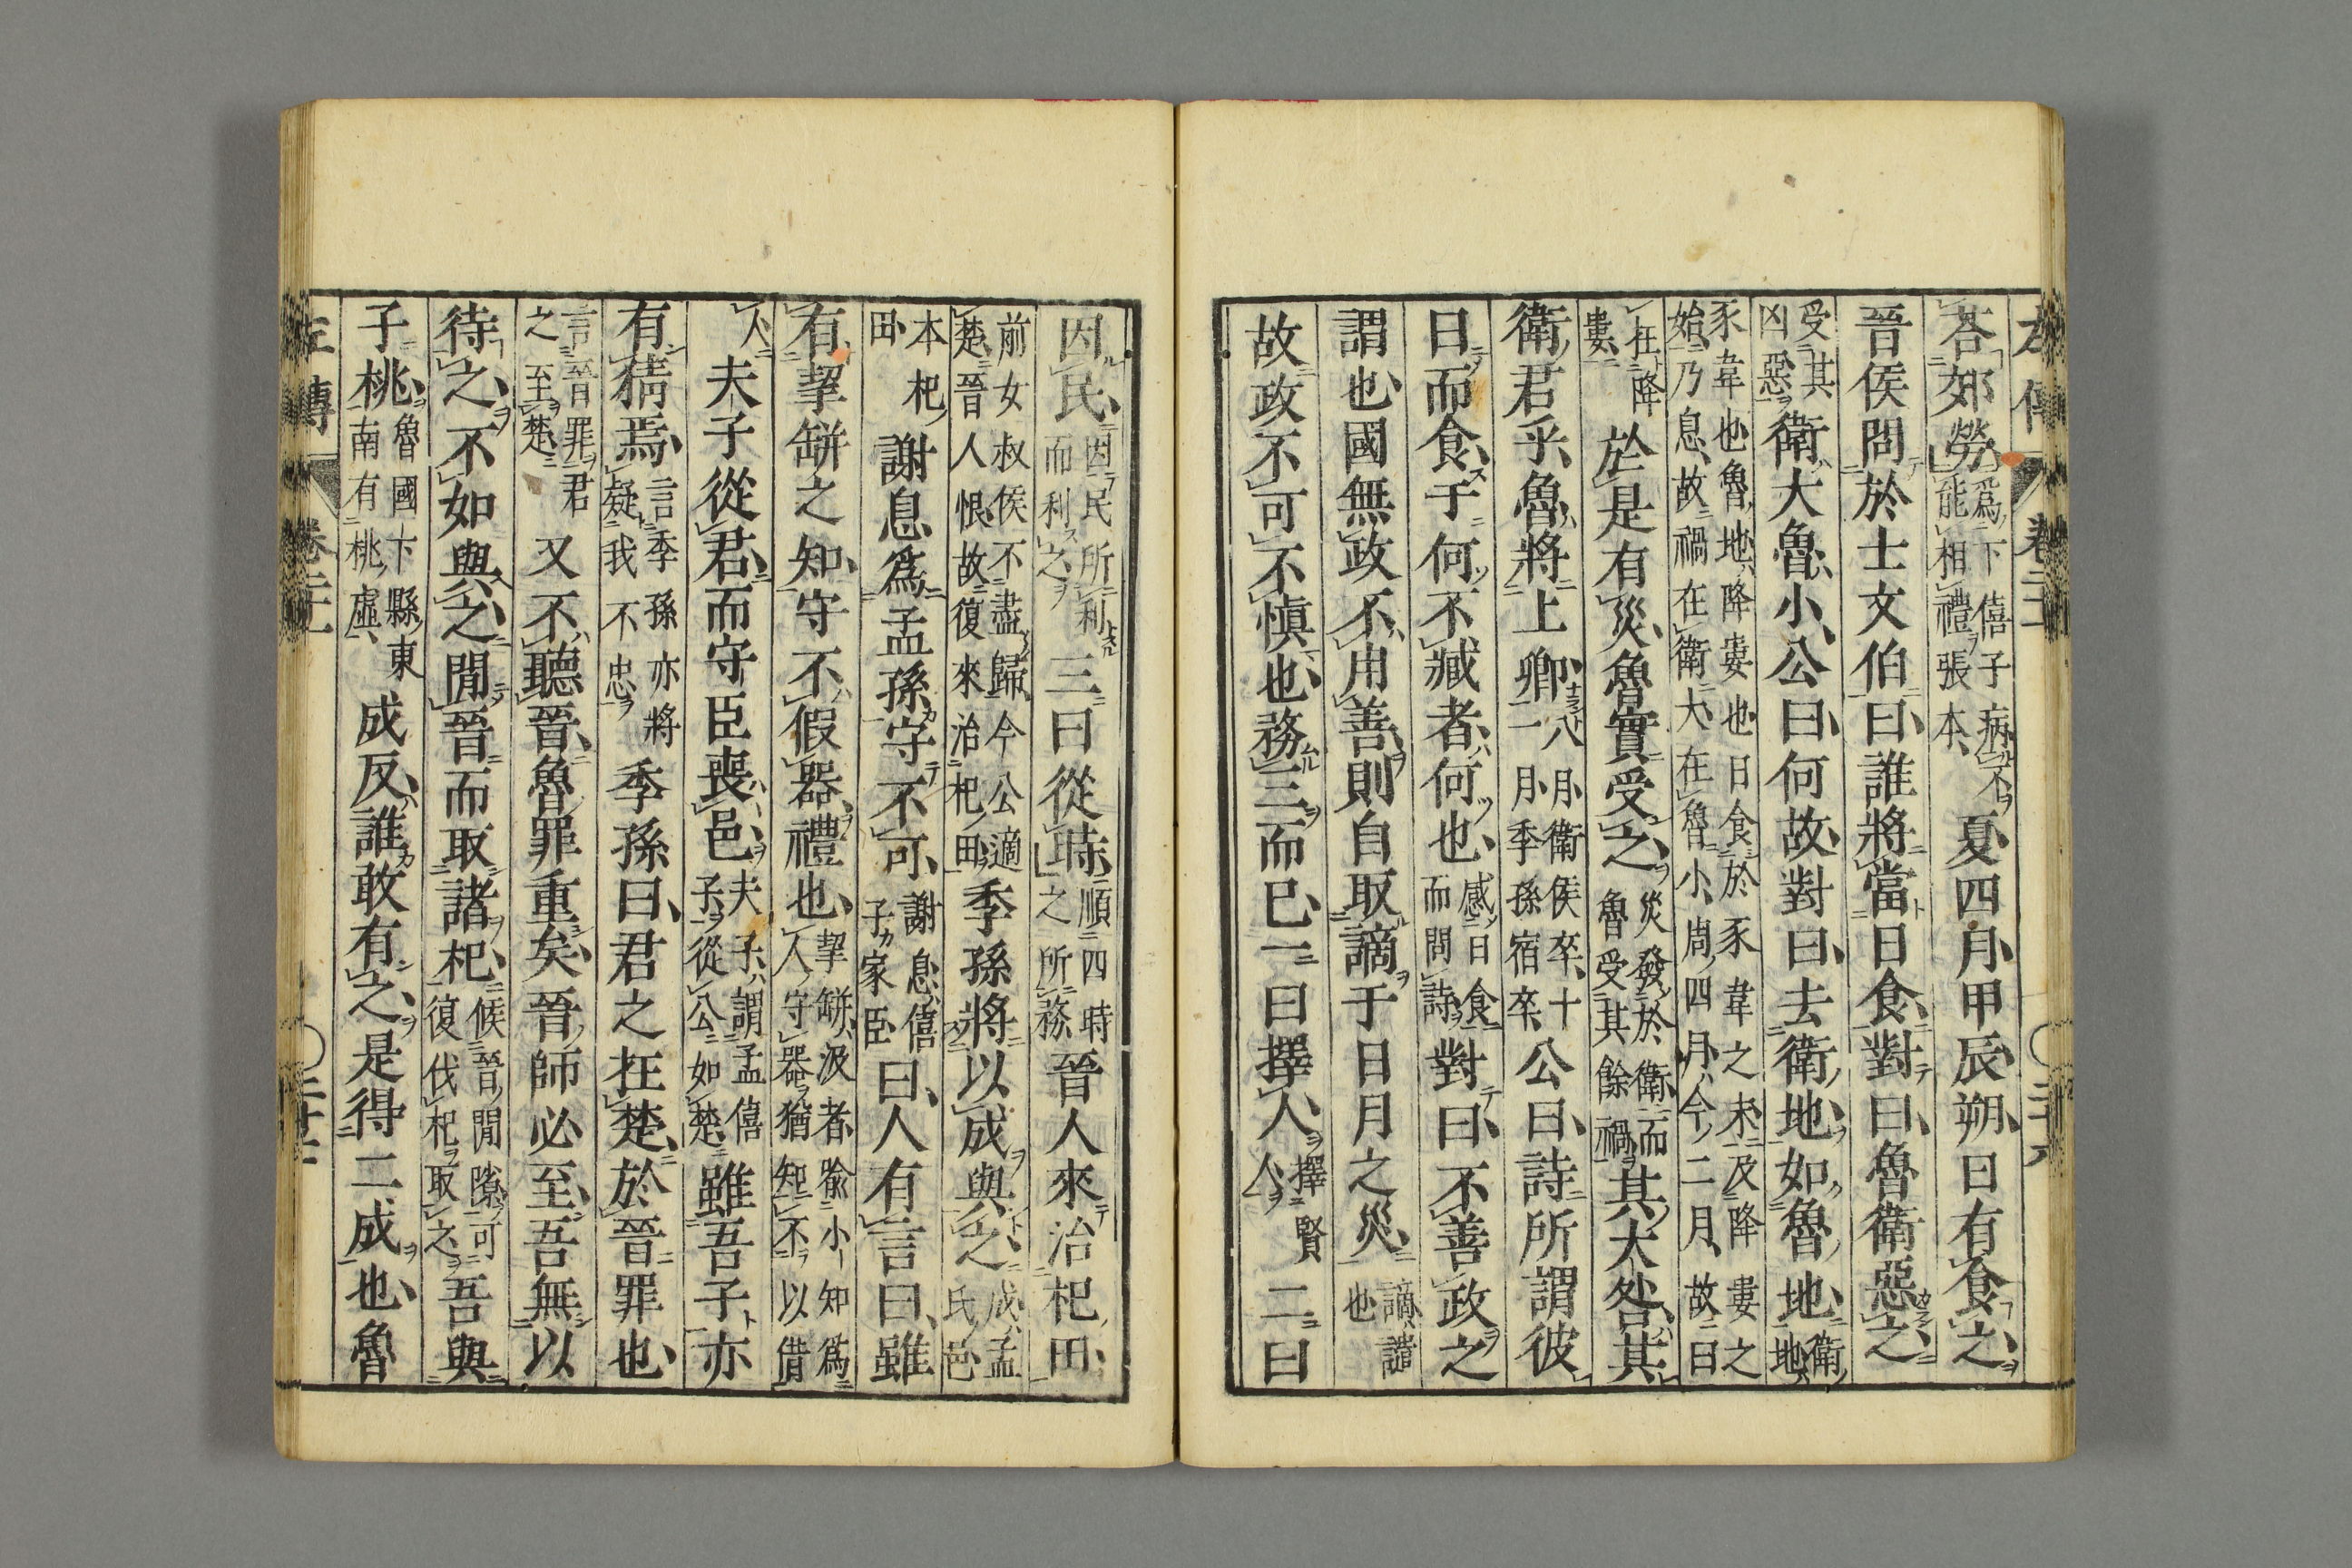 左傳 卷二十一 ○二十六
荅郊勞爲下僖子病不能相禮張本夏四月甲辰朔日有食之
晉侯問於士文伯曰誰將當日食對曰魯衛惡之
受其凶惡衛大魯小公曰何故對曰去衛地如魯地衛地
豕韋也魯地降婁也日食於豕韋之末及降婁之
始乃息故禍在衛大在魯小周四月今二月故曰
在降婁於是有災魯實受之災發於衛而魯受其餘禍其大咎其
衛君乎魯將上卿八月衛侯卒十一月季孫宿卒公曰詩所謂彼
日而食于何不臧者何也感日食而問詩對曰不善政之
謂也國無政不用善則自取謫于日月之災謫譴也
故政不可不慎也務三而已一曰擇人擇賢人二曰
因民因民所利而利之三曰從時順四時之所務晉人來治杞田
前女叔侯不盡歸今公適楚晉人恨故復來治杞田季孫將以成與之成孟氏邑
本杞田謝息爲孟孫守不可謝息僖子家臣曰人有言曰雖
有挈缾之知守不假器禮也挈缾汲者喩小知爲人守器猶知不以借
人夫子從君而守臣喪邑夫子謂孟僖子從公如楚雖吾子亦
有猜焉言季孫亦將疑我不忠季孫曰君之在楚於晉罪也
言晉罪君之至楚又不聽晉魯罪重矣晉師必至吾無以
待之不如與之閒晉而取諸杞候晉閒隙可復伐杞取之吾與
子桃魯國卞縣東南有桃虛成反誰敢有之是得二成也魯
左傳 卷二十一